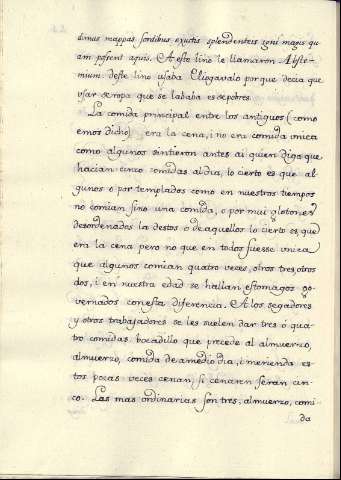 dimus mappas sordibus exustis splendenteis igni magis qu
am possent aquis. A este lino le llamaron Asbesti-
mium deste lino usaba Eliogavalo porque decia que
usar de ropa que se lababa es de pobres.
La comida principal entre los antiguos (como
emos dicho) era la cena, i no era comida unica
como algunos sintieron antes ai quien diga que
hacian cinco comidas al dia, lo cierto es que al
gunos o por templados como en nuestros tiempos
no comian sino una comida, o por mui glotones
desordenados la destos o de aquellos lo cierto es que
era la cena pero no que en todos fuesse unica
que algunos comian quatro veces, otros tres, otros
dos, i en nuestra edad se hallan estomagos go
vernados con esta diferencia. A los segadores
y otros trabajadores se les suelen dar tres o qua
tro comidas, bocadillo que precede al almuerzo,
almuerzo, comida de a medio dia, i merienda es
tos pocas veces cenan, si cenaren seran cin
co. Las mas ordinarias son tres, almuerzo, comi
da